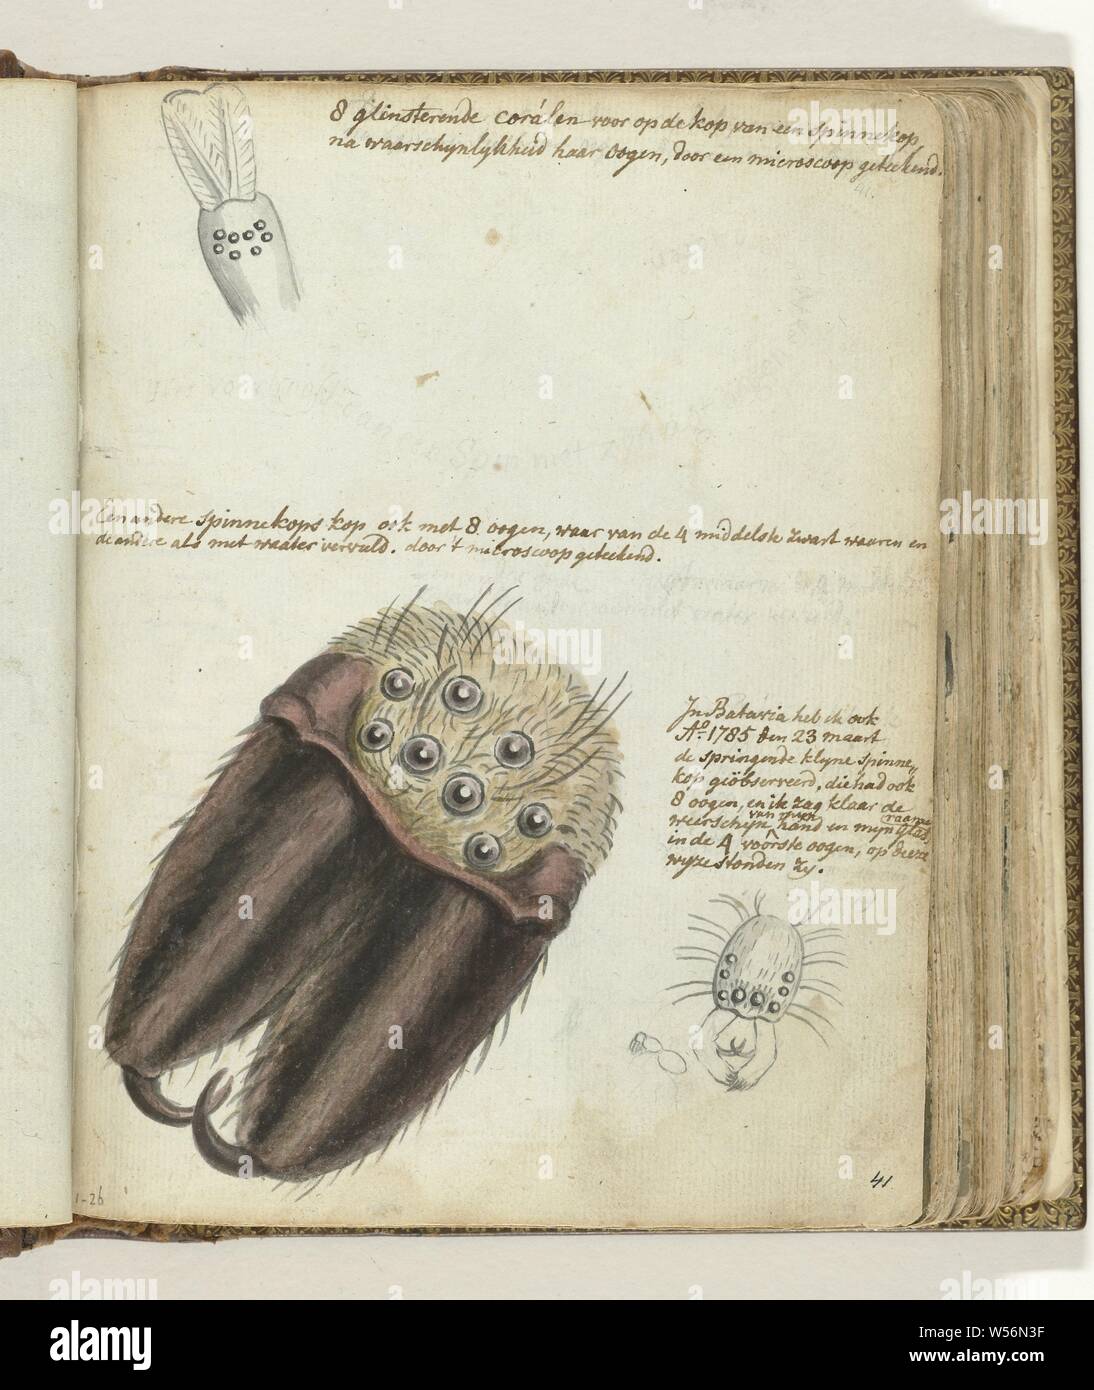 8 glinsterende corálen voor op de kop van een spinnekop,
na waarschynlykheid haar oogen, door een microscoop geteekend.
Een andere spinnekops kop ook met 8 oogen, waar van de 4 middelste zwart waaren en
de andere als met waater vervuld. door 't microscoop geteekend.
Jn Batavia heb ik ook
Aº 1785 den 23 maart
de springende kleyne spinne„
kop geöbserveerd, die had ook
8 oogen, en ik zag klaar de
weerschyn van myn hand en myn glas raame
in de 4 voorste oogen, op deeze
wyze stonden zy.
41
1-26
alamy
alamy stock photo
W56N3F
www.alamy.com